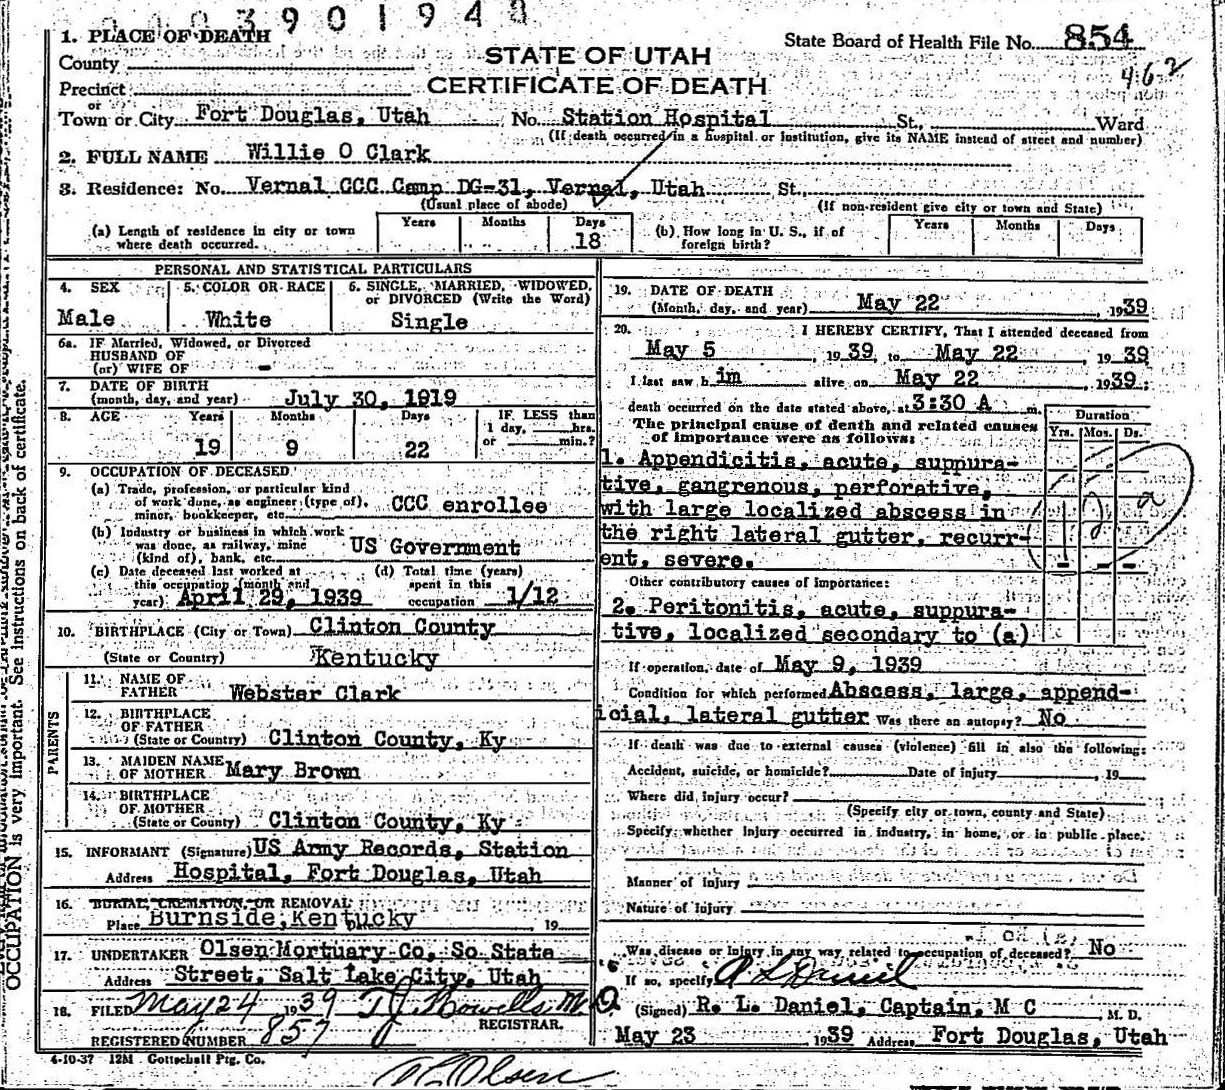 3901940
1. PLACE OF DEATH
State Board of Health File No. 854
County
STATE OF UTAH
462
Precinct
CERTIFICATE OF DEATH
or
Town or City Fort Douglas, Utah No. Station Hospital St., Ward
(If death occurred in a hospital or institution, give its NAME instead of street and number)
2. FULL NAME Willie O Clark
3. Residence: No. Vernal CCC Camp DG-31, Vernal, Utah St.,
(Usual place of abode) (If non-resident give city or town and State)
(a) Length of residence in city or town where death occurred. Years Months Days 18
(b) How long in U. S., if of foreign birth? Years Months Days
PERSONAL AND STATISTICAL PARTICULARS
4. SEX 5. COLOR OR RACE 6. SINGLE, MARRIED, WIDOWED,
or DIVORCED (Write the Word)
Male White Single
6a. IF Married, Widowed, or Divorced
HUSBAND OF
(or) WIFE OF -
7. DATE OF BIRTH
(month, day, and year) July 30, 1919
8. AGE Years Months Days IF LESS than
1 day, hrs.
or min.?
19 9 22
9. OCCUPATION OF DECEASED
(a) Trade, profession, or particular kind
of work done, as engineer (type of),
miner, bookkeeper, etc. CCC enrollee
(b) Industry or business in which work
was done, as railway, mine
(kind of), bank, etc. US Government
(c) Date deceased last worked at
this occupation (month and
year) April 29, 1939
(d) Total time (years)
spent in this
occupation 1/12
10. BIRTHPLACE (City or Town) Clinton County
(State or Country) Kentucky
PARENTS
11. NAME OF
FATHER Webster Clark
12. BIRTHPLACE
OF FATHER
(State or Country) Clinton County, Ky
13. MAIDEN NAME
OF MOTHER Mary Brown
14. BIRTHPLACE
OF MOTHER
(State or Country) Clinton County, Ky
15. INFORMANT (Signature) US Army Records, Station
Address Hospital, Fort Douglas, Utah
16. BURIAL, CREMATION, OR REMOVAL
Place Burnside, Kentucky Date 19
17. UNDERTAKER Olsen Mortuary Co, So State
Address Street, Salt Lake City, Utah
18. FILED May 24 1939 T J Howells M.D.
REGISTRAR.
REGISTERED NUMBER 857
4-10-37 12M Gottschall Ptg. Co.
19. DATE OF DEATH
(Month, day, and year) May 22 , 1939
20. I HEREBY CERTIFY, That I attended deceased from
May 5 , 1939, to May 22 , 1939
I last saw him alive on May 22 , 1939
death occurred on the date stated above, at 3:30 A m.
The principal cause of death and related causes
of importance were as follows:
Duration
Yrs. Mos. Ds.
1. Appendicitis, acute, suppura-
tive, gangrenous, perforative,
with large localized abscess in
the right lateral gutter, recurr-
ent, severe. - - -
121a
Other contributory causes of importance:
2. Peritonitis, acute, suppura-
tive, localized secondary to (a)
If operation, date of May 9, 1939
Condition for which performed Abscess, large, append-
icial, lateral gutter Was there an autopsy? No
If death was due to external causes (violence) fill in also the following:
Accident, suicide, or homicide? Date of injury , 19
Where did injury occur?
(Specify city or town, county and State)
Specify whether injury occurred in industry, in home, or in public place.
Manner of Injury
Nature of Injury
Was disease or injury in any way related to occupation of deceased? No
If so, specify R L Daniel
(Signed) R. L. Daniel, Captain, M C , M. D.
May 23 1939 Address Fort Douglas, Utah
OCCUPATION is very important. See instructions on back of certificate.
Olsen